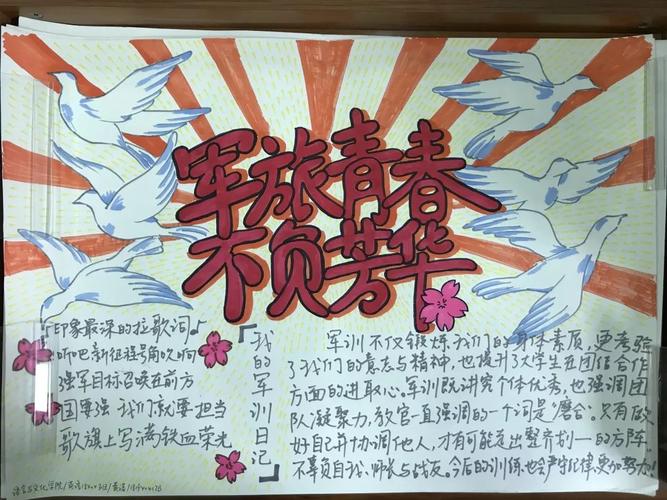 军旅青春
不负芳华
印象最深的拉歌词
听吧新征程号角吹响
强军目标召唤在前方
国要强 我们就要担当
歌旗上写满铁血荣光
我的军训日记
军训不仅锻炼我们的身体素质，更考验
了我们的意志与精神，也提升了大学生在团结合作
方面的进取心。军训既讲究个体优秀，也强调团
队凝聚力，教官一直强调的一个词是“磨合”。只有做
好自己并协调他人，才有可能走出整齐划一的方阵，
不辜负自我、师长与战友。今后的训练，也会严守纪律，更加努力！
语言与文化学院/英语